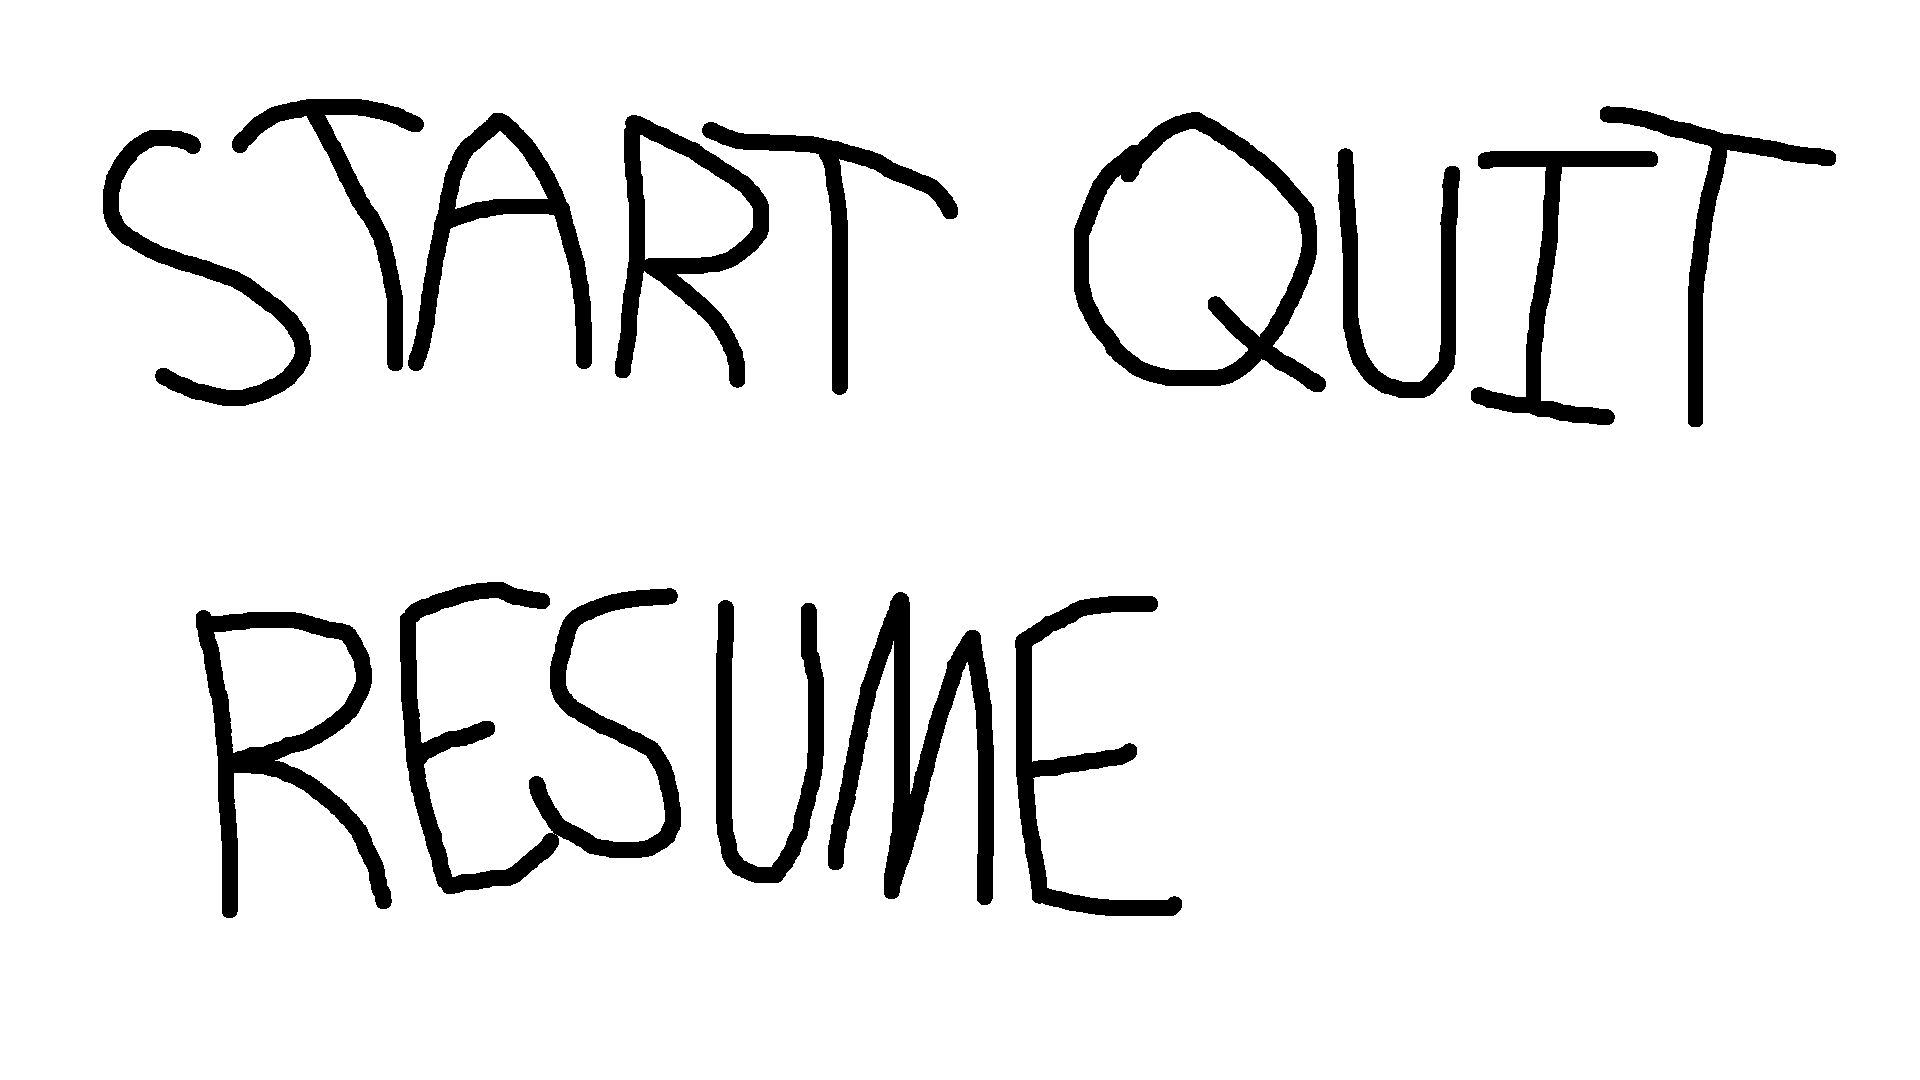 START QUIT
RESUME